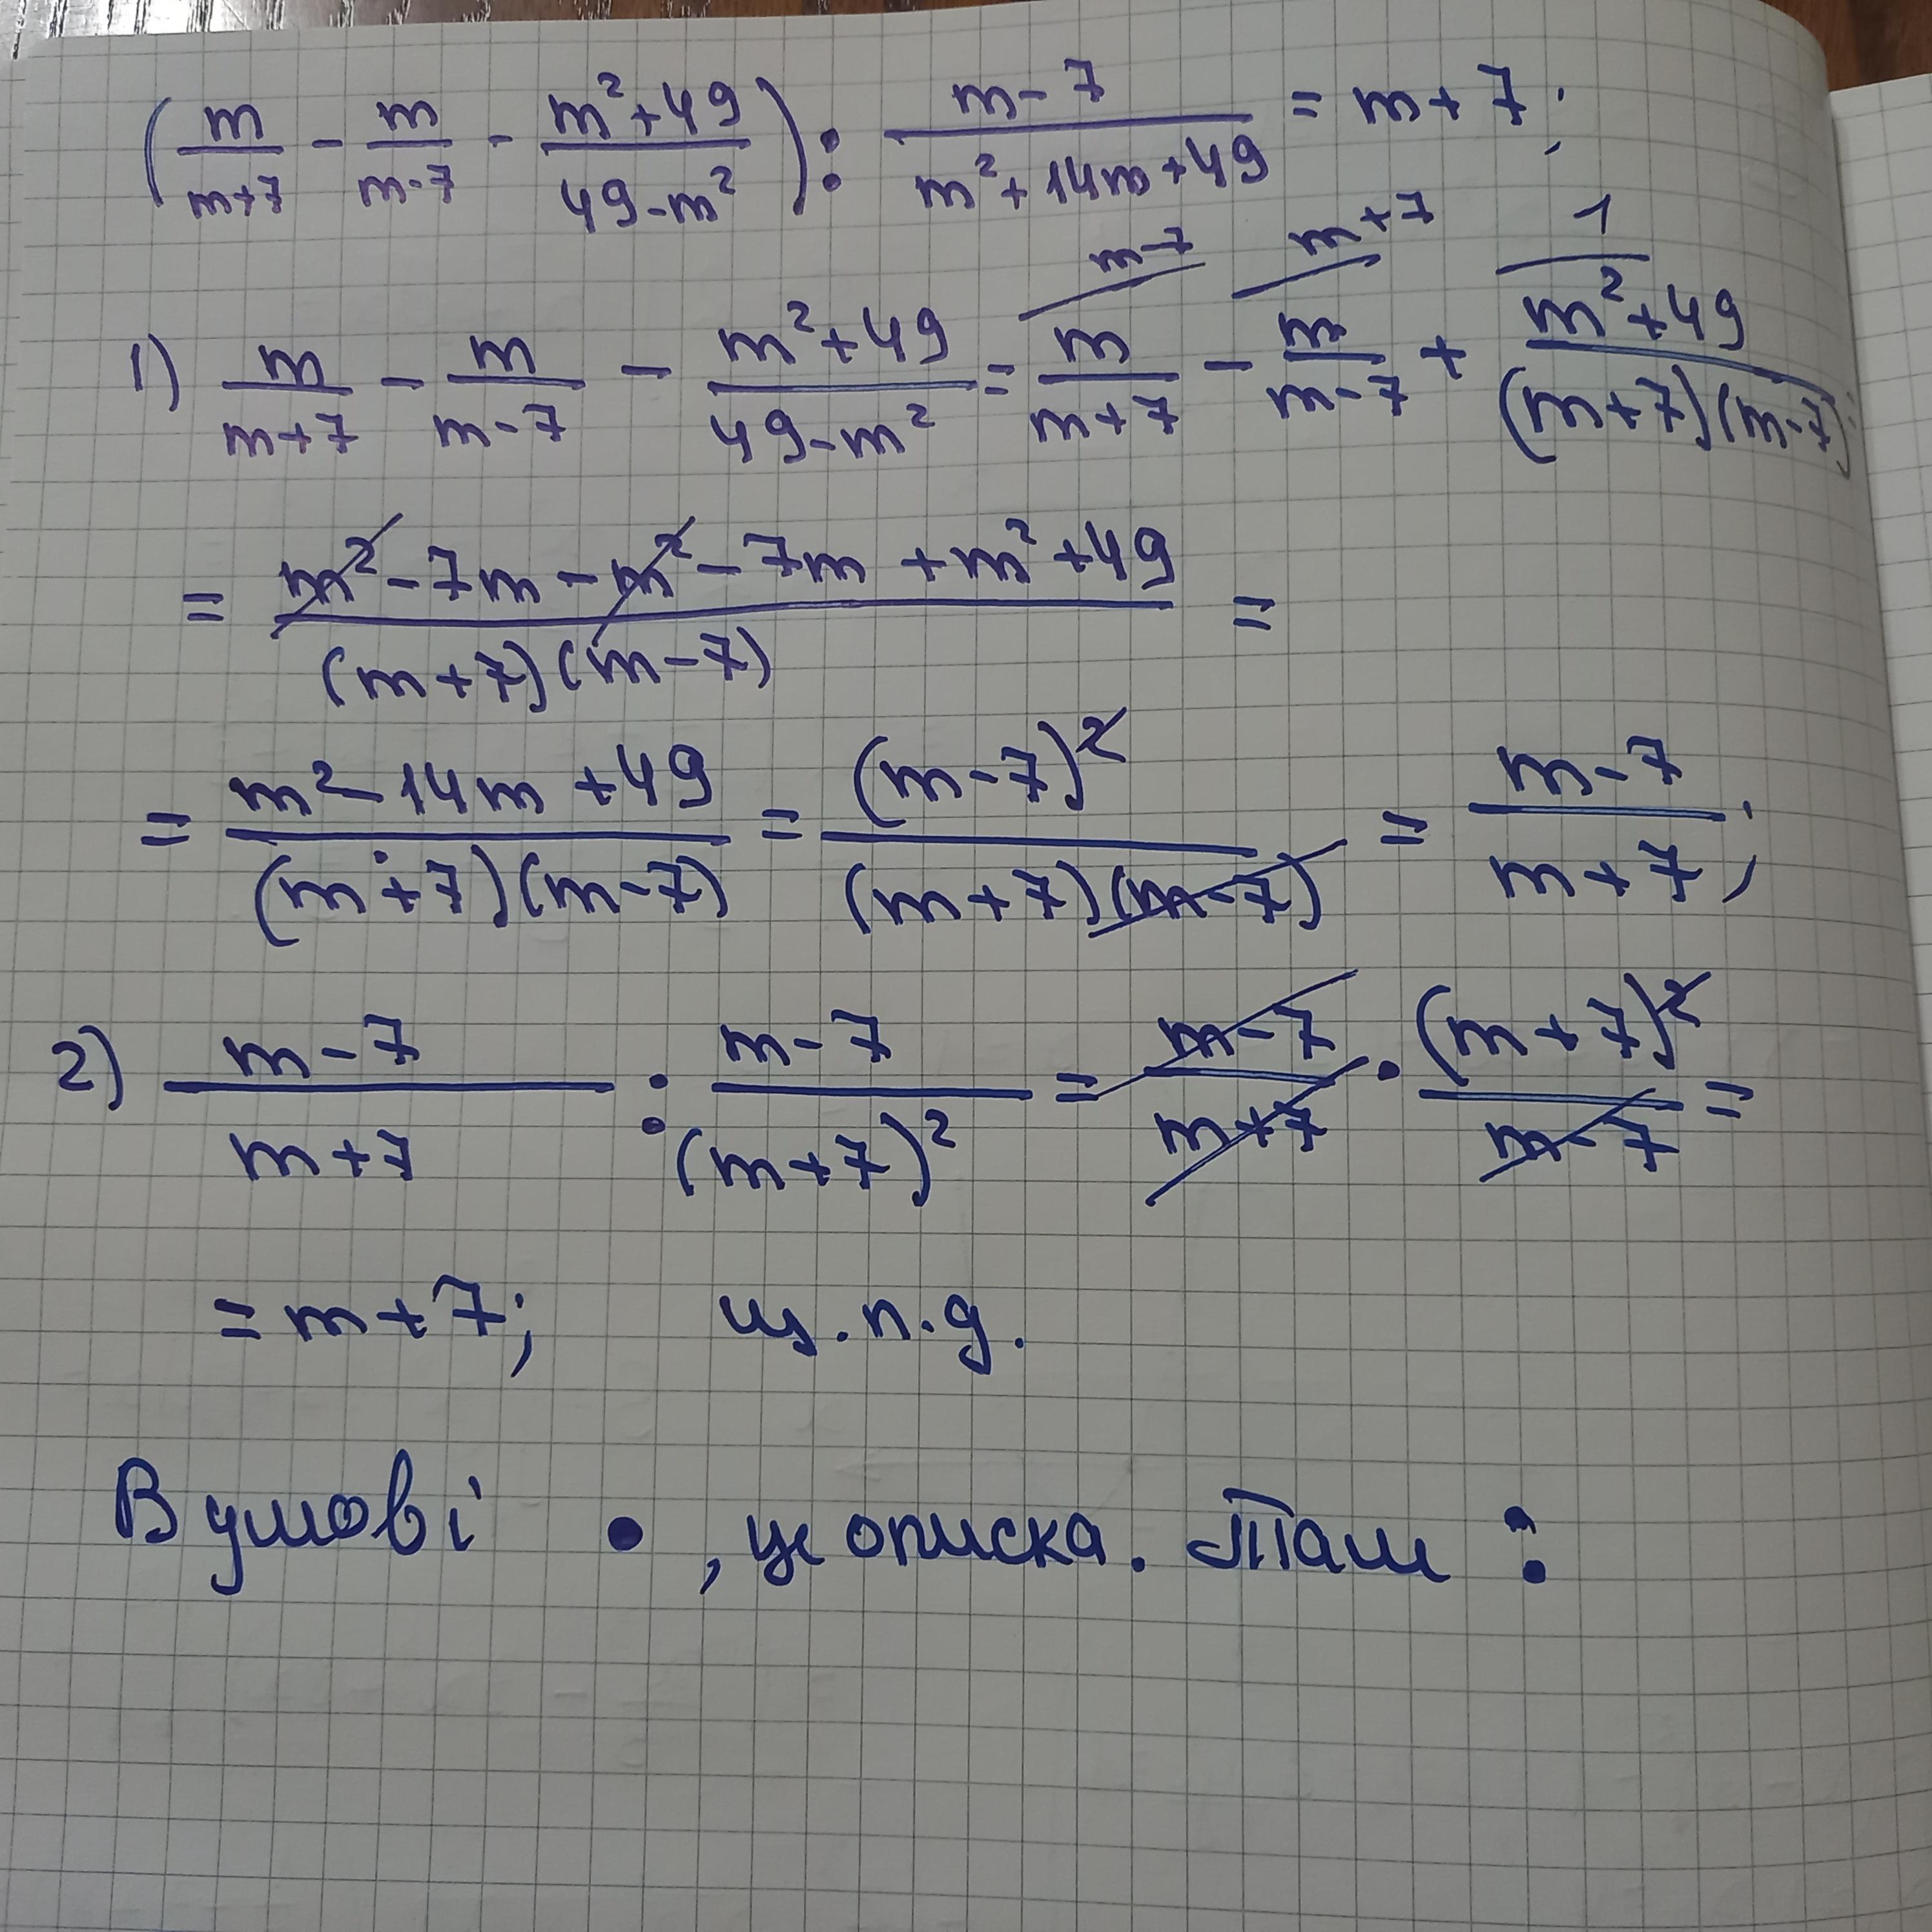 (m/(m+7) - m/(m-7) - (m²+49)/(49-m²)) : (m-7)/(m²+14m+49) = m+7;
1) m/(m+7) - m/(m-7) - (m²+49)/(49-m²) = m/(m+7) (m-7 - m/(m-7) (m+7 + (m²+49)/((m+7)(m-7)) (1
= (m²-7m-m²-7m+m²+49)/((m+7)(m-7)) =
= (m²-14m+49)/((m+7)(m-7)) = (m-7)²/((m+7)(m-7)) = (m-7)/(m+7);
2) (m-7)/(m+7) : (m-7)/(m+7)² = (m-7)/(m+7) · (m+7)²/(m-7) =
= m+7; щ.п.д.
В умові • , це описка. Там :